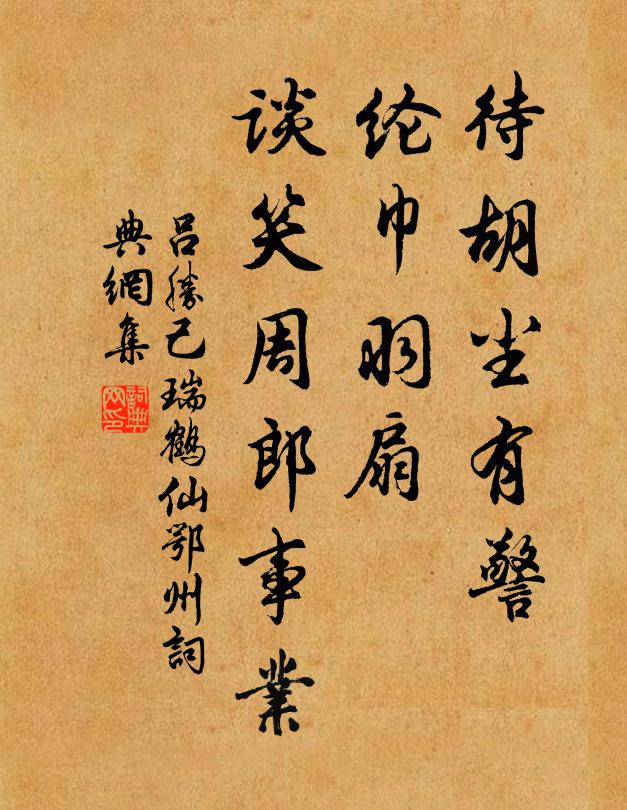 待胡尘有警
纶巾羽扇
谈笑周郎事業
吕勝己瑞鶴仙鄂州詞
典網集
詞典
网印